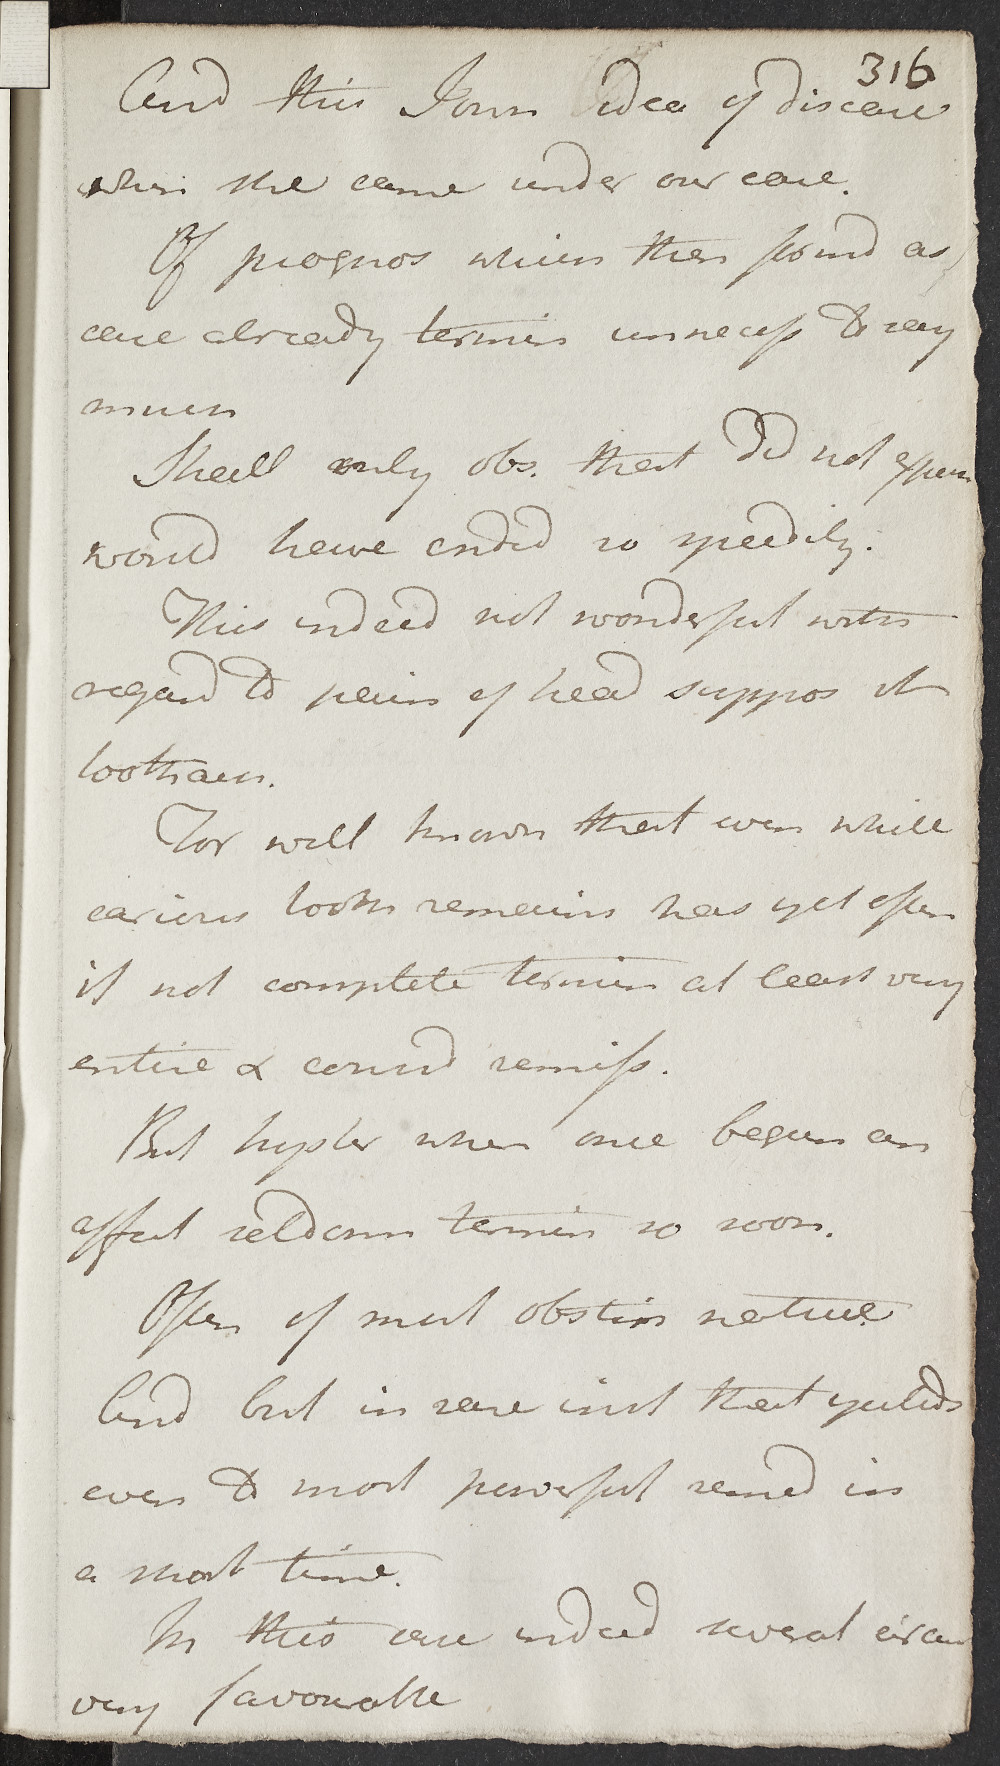 316
And this I own idea of disease
when she came under our care.
Of prognos when then found as
case already termin unnecess to say
much
Shall only obs. that did not expect
would have ended so speedily.
This indeed not wonderful with
regard to pain of head suppos it
toothach.
For well known that even while
carious tooth remains has yet often
if not complete termin at least very
entire & consid remiss.
But hyster when once began an
affect seldom termin so soon.
Often of most obstin nature.
And but in rare inst that yields
even to most powerful remed in
a short time.
In this case indeed several circum
very favourable